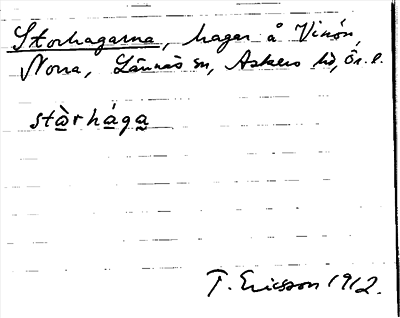 Storhagarna, hagar å Vinön,
Norra, Lännäs sn, Askers hd, Ör. l.
stà̱rhá̱ga̱
T. Ericson 1912.